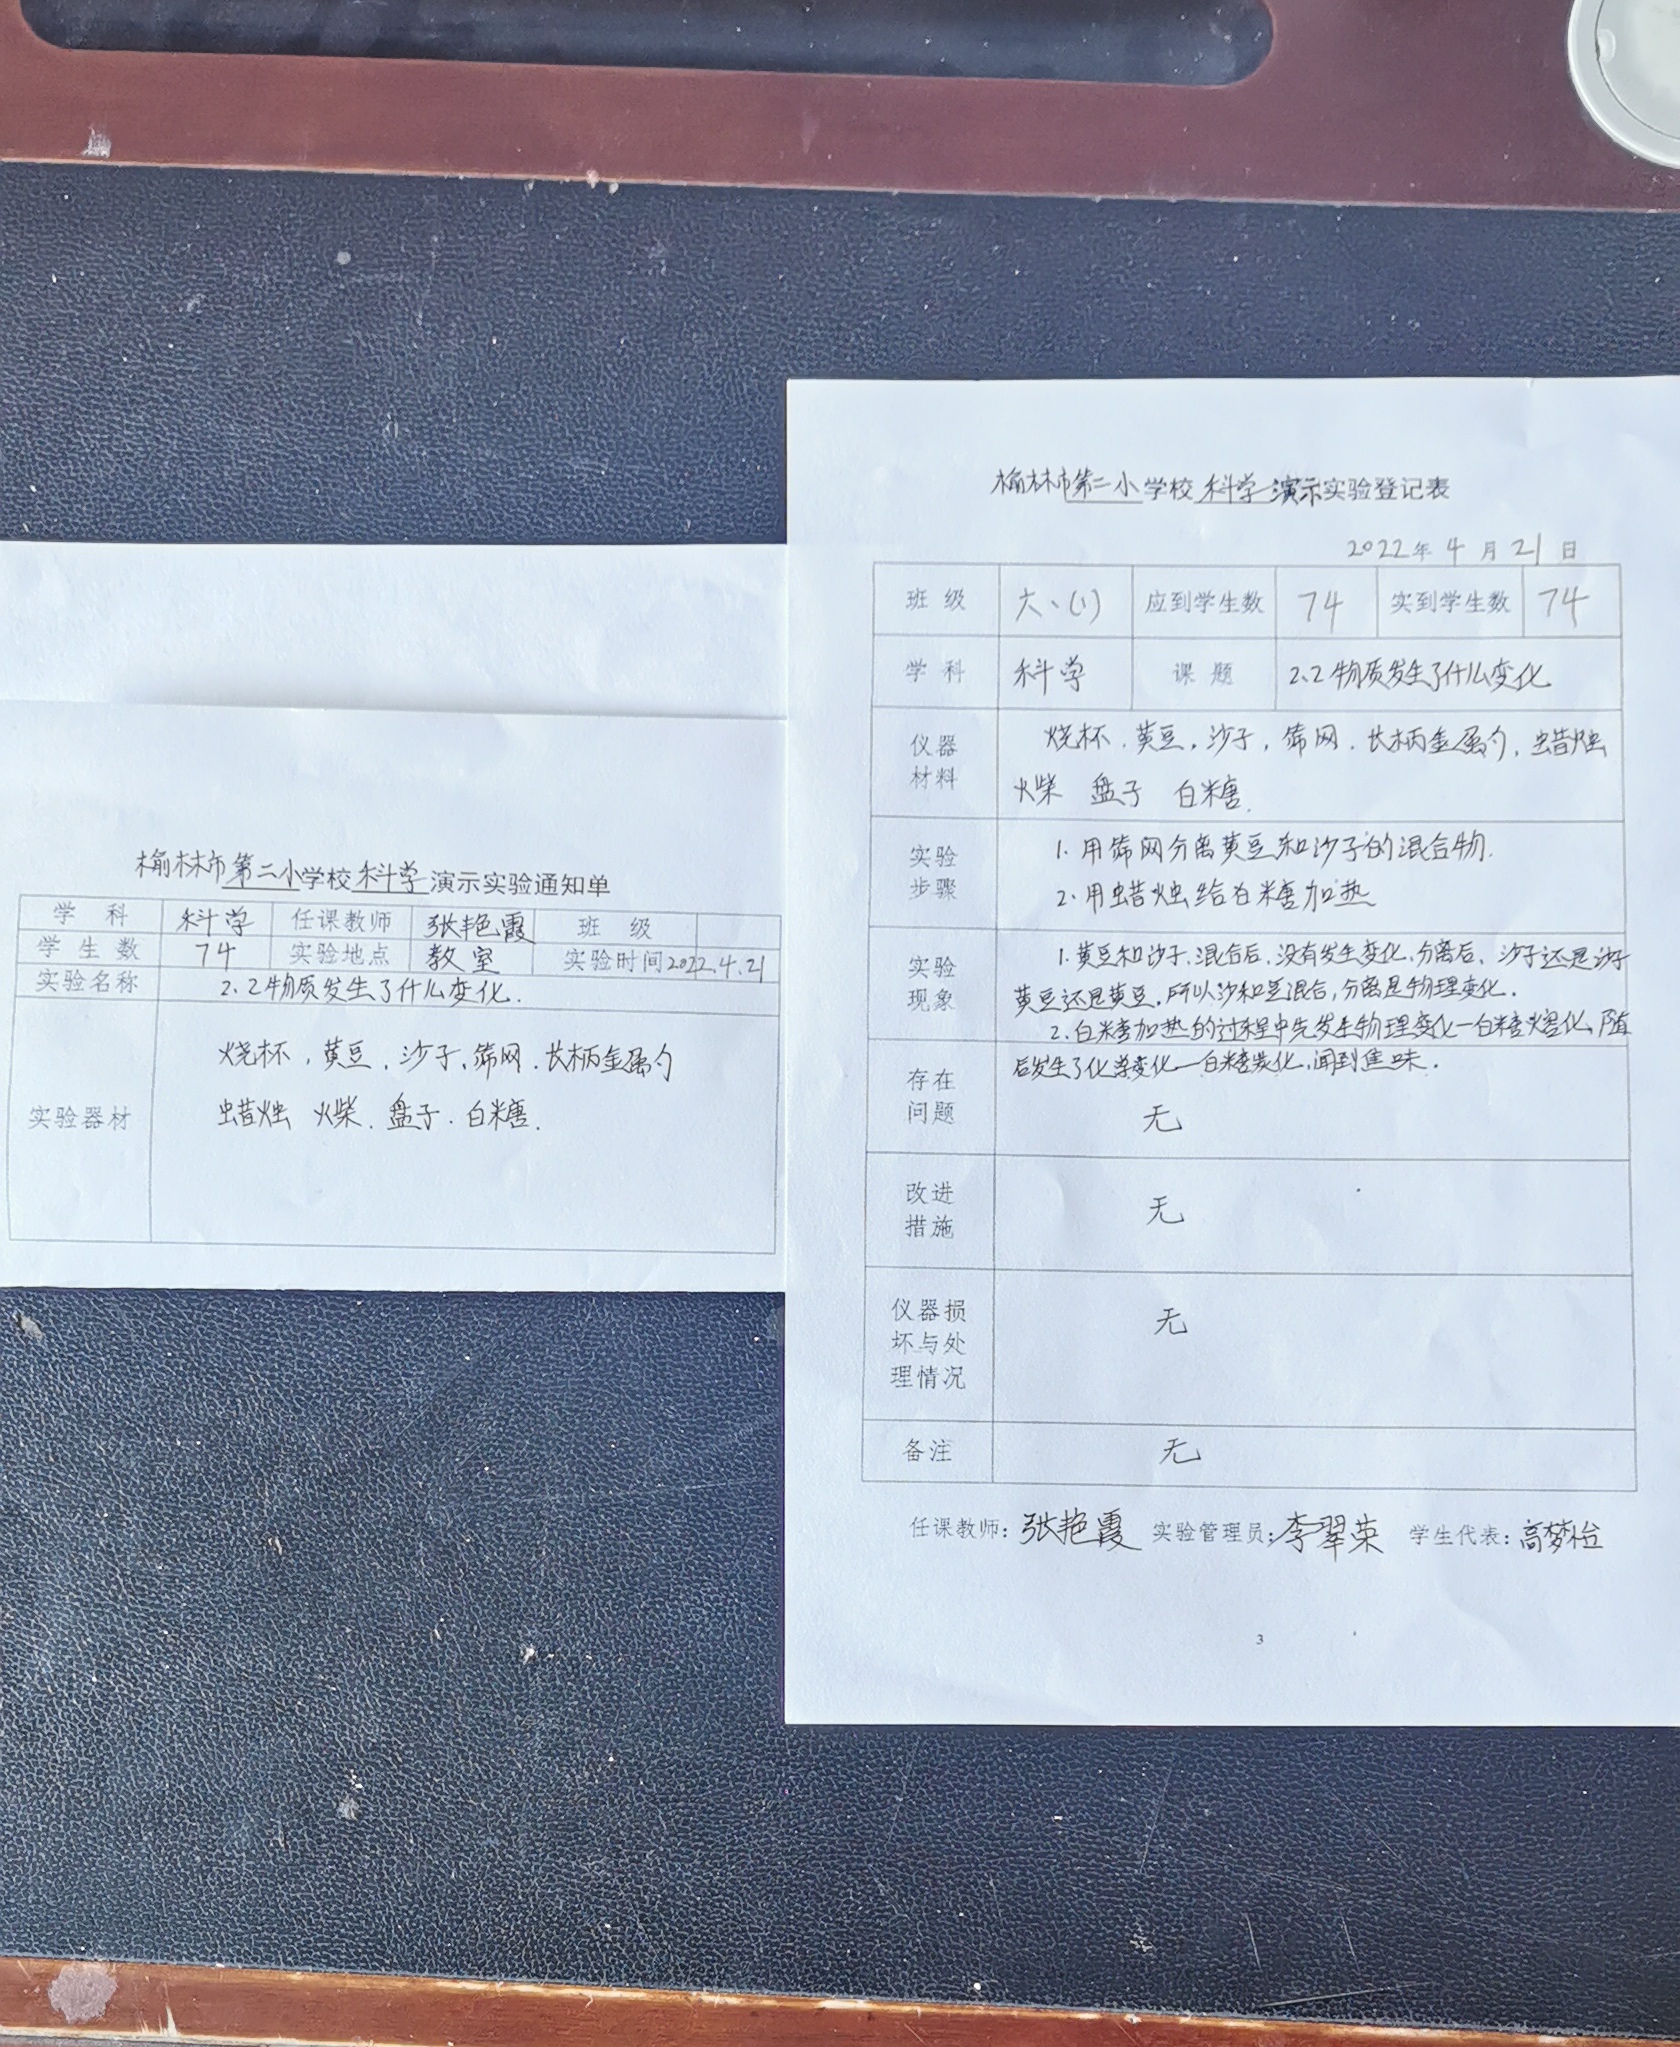 榆林市第二小学校科学演示实验通知单
学 科 科学 任课教师 张艳霞 班 级
学生数 74 实验地点 教室 实验时间 2022.4.21
实验名称 2.2物质发生了什么变化.
实验器材 烧杯,黄豆,沙子,筛网.长柄金属勺
蜡烛 火柴.盘子.白糖.
榆林市第二小学校科学演示实验登记表
2022年 4 月 21 日
班 级 六、(1) 应到学生数 74 实到学生数 74
学 科 科学 课 题 2.2物质发生了什么变化
仪器材料 烧杯.黄豆,沙子,筛网.长柄金属勺,蜡烛
火柴 盘子 白糖.
实验步骤 1.用筛网分离黄豆和沙子的混合物.
2.用蜡烛给白糖加热
实验现象 1.黄豆和沙子,混合后,没有发生变化,分离后,沙子还是沙子
黄豆还是黄豆,所以沙和豆混合,分离是物理变化.
2.白糖加热的过程中先发生物理变化—白糖熔化,随
后发生了化学变化—白糖炭化,闻到焦味.
存在问题 无
改进措施 无
仪器损坏与处理情况 无
备注 无
任课教师:张艳霞 实验管理员:李翠荣 学生代表:高梦
3